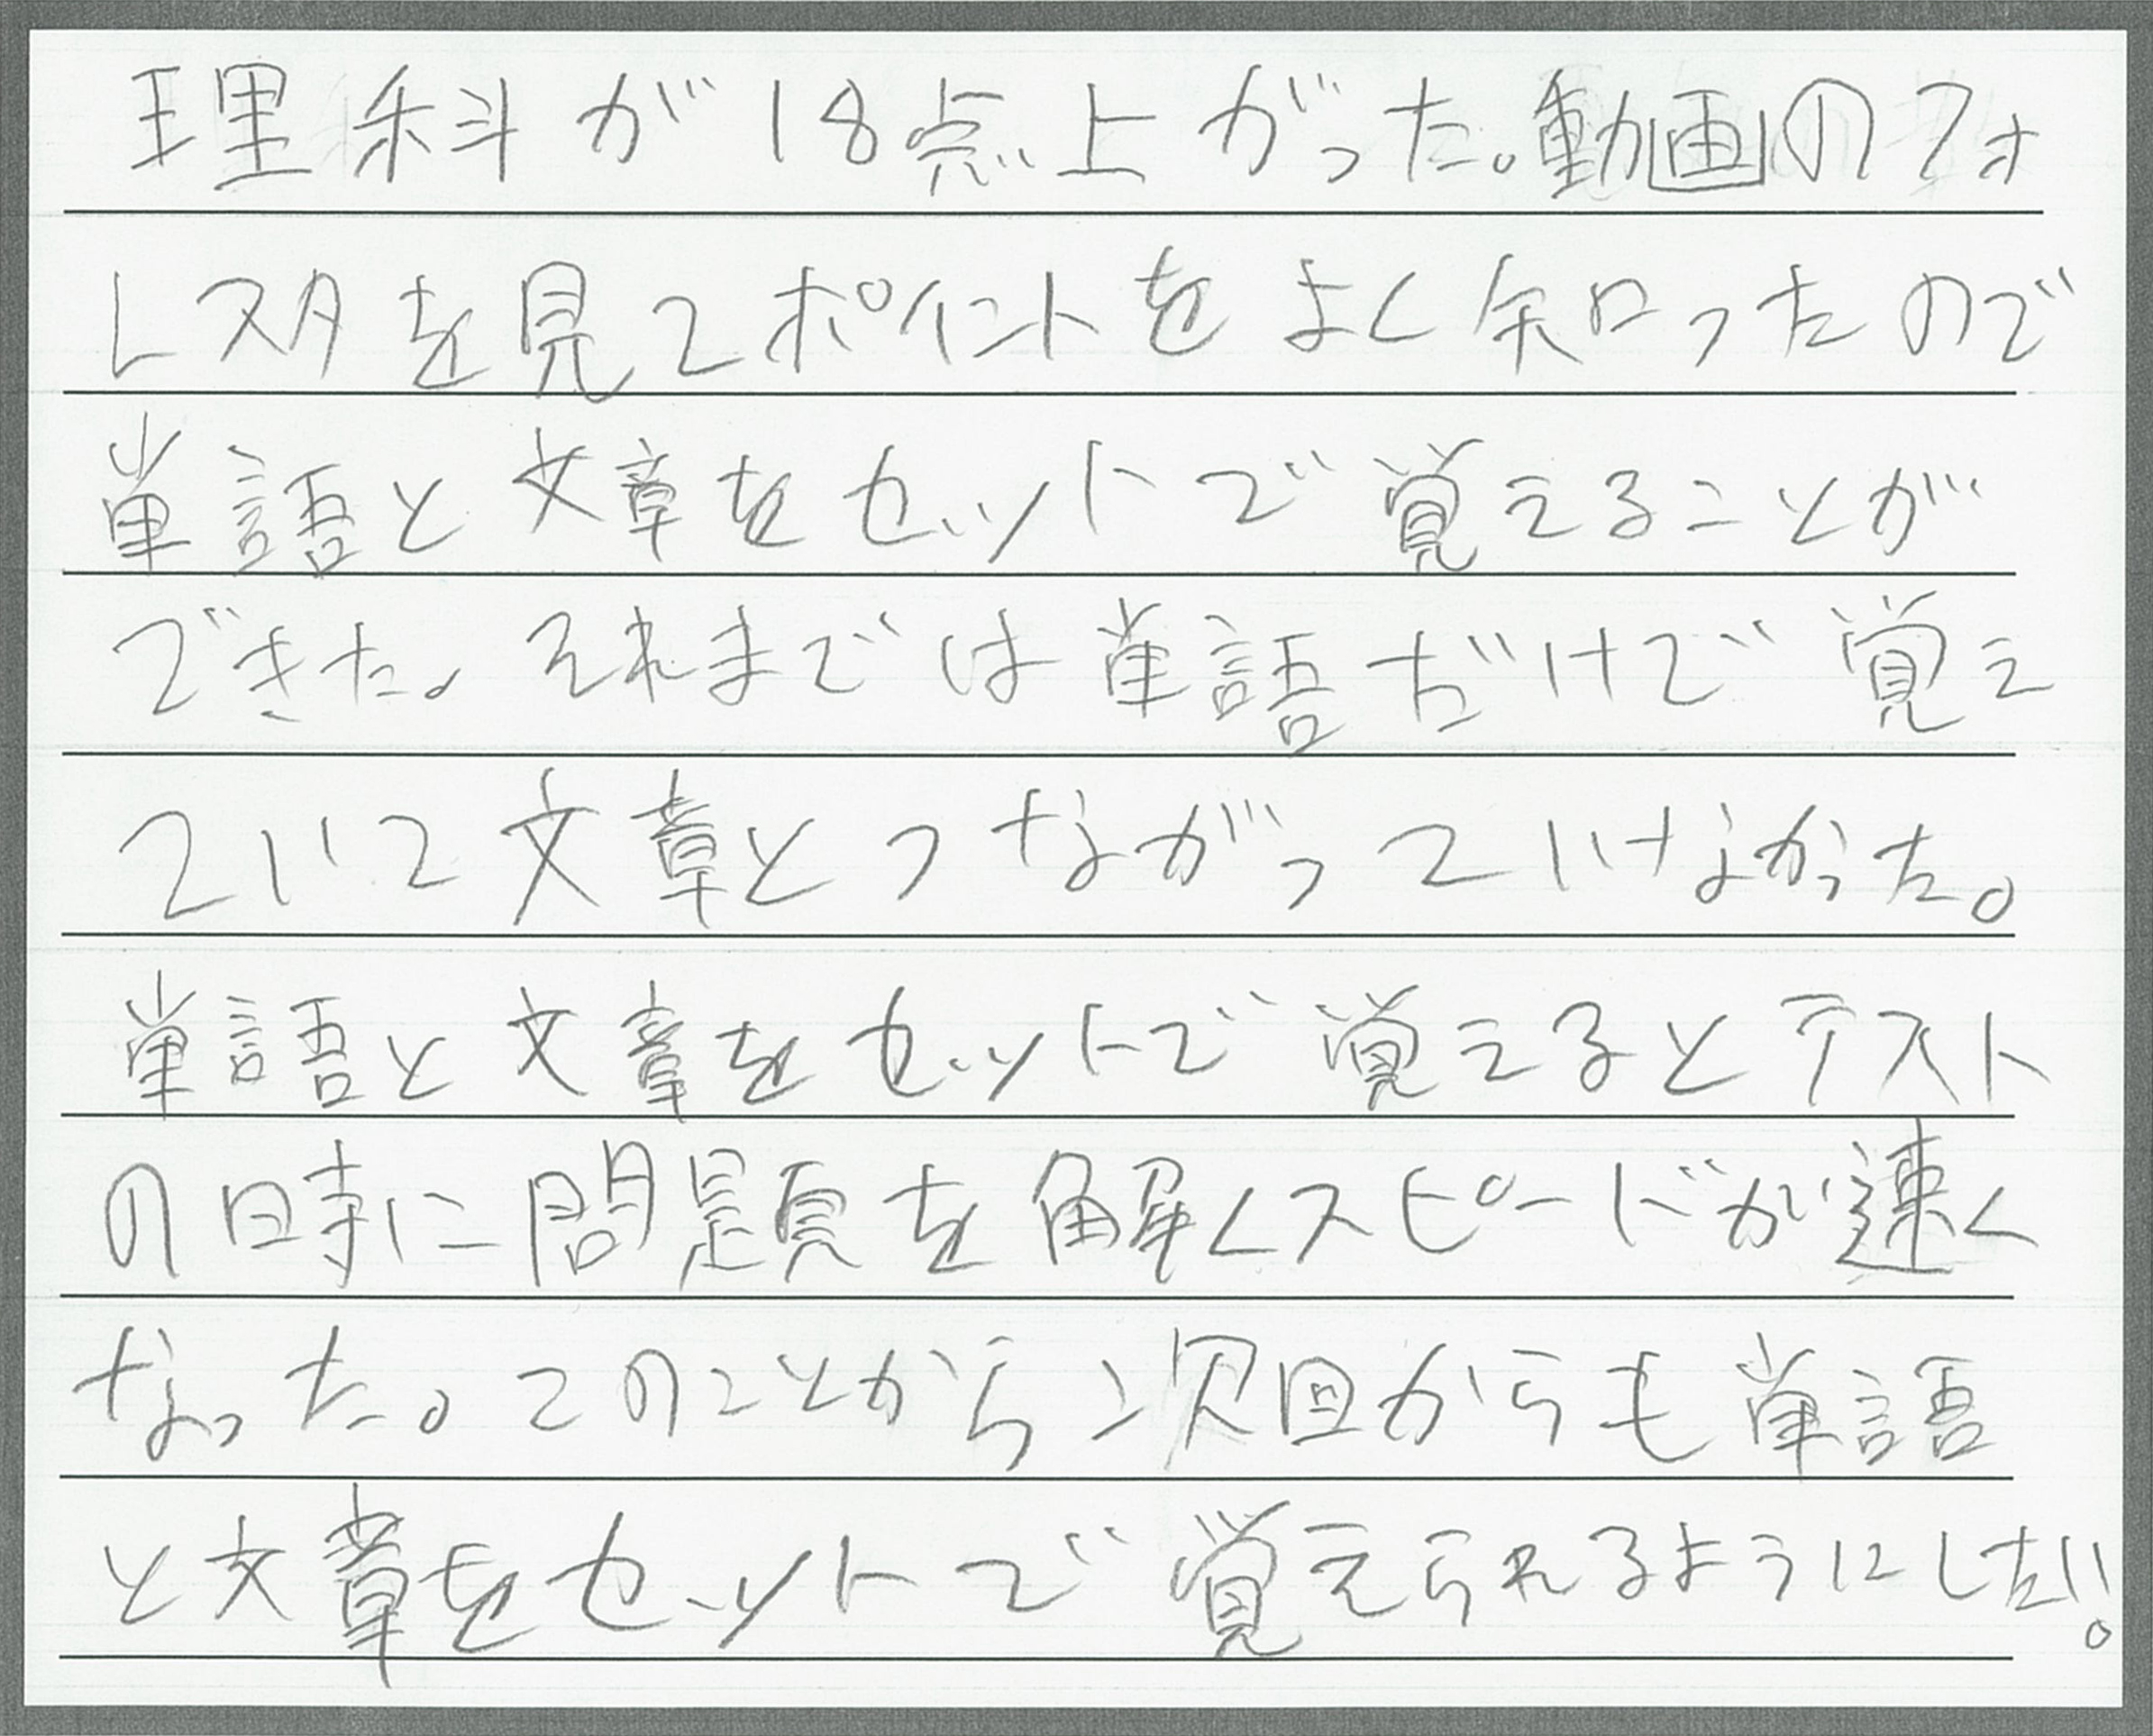 理科が18点上がった。動画のフォ
レスタを見てポイントをよく知ったので
単語と文章をセットで覚えることが
できた。それまでは単語だけで覚え
ていて文章とつながっていけなかった。
単語と文章をセットで覚えるとテスト
の時に問題を解くスピードが速く
なった。このことから次回からも単語
と文章をセットで覚えられるようにしたい。